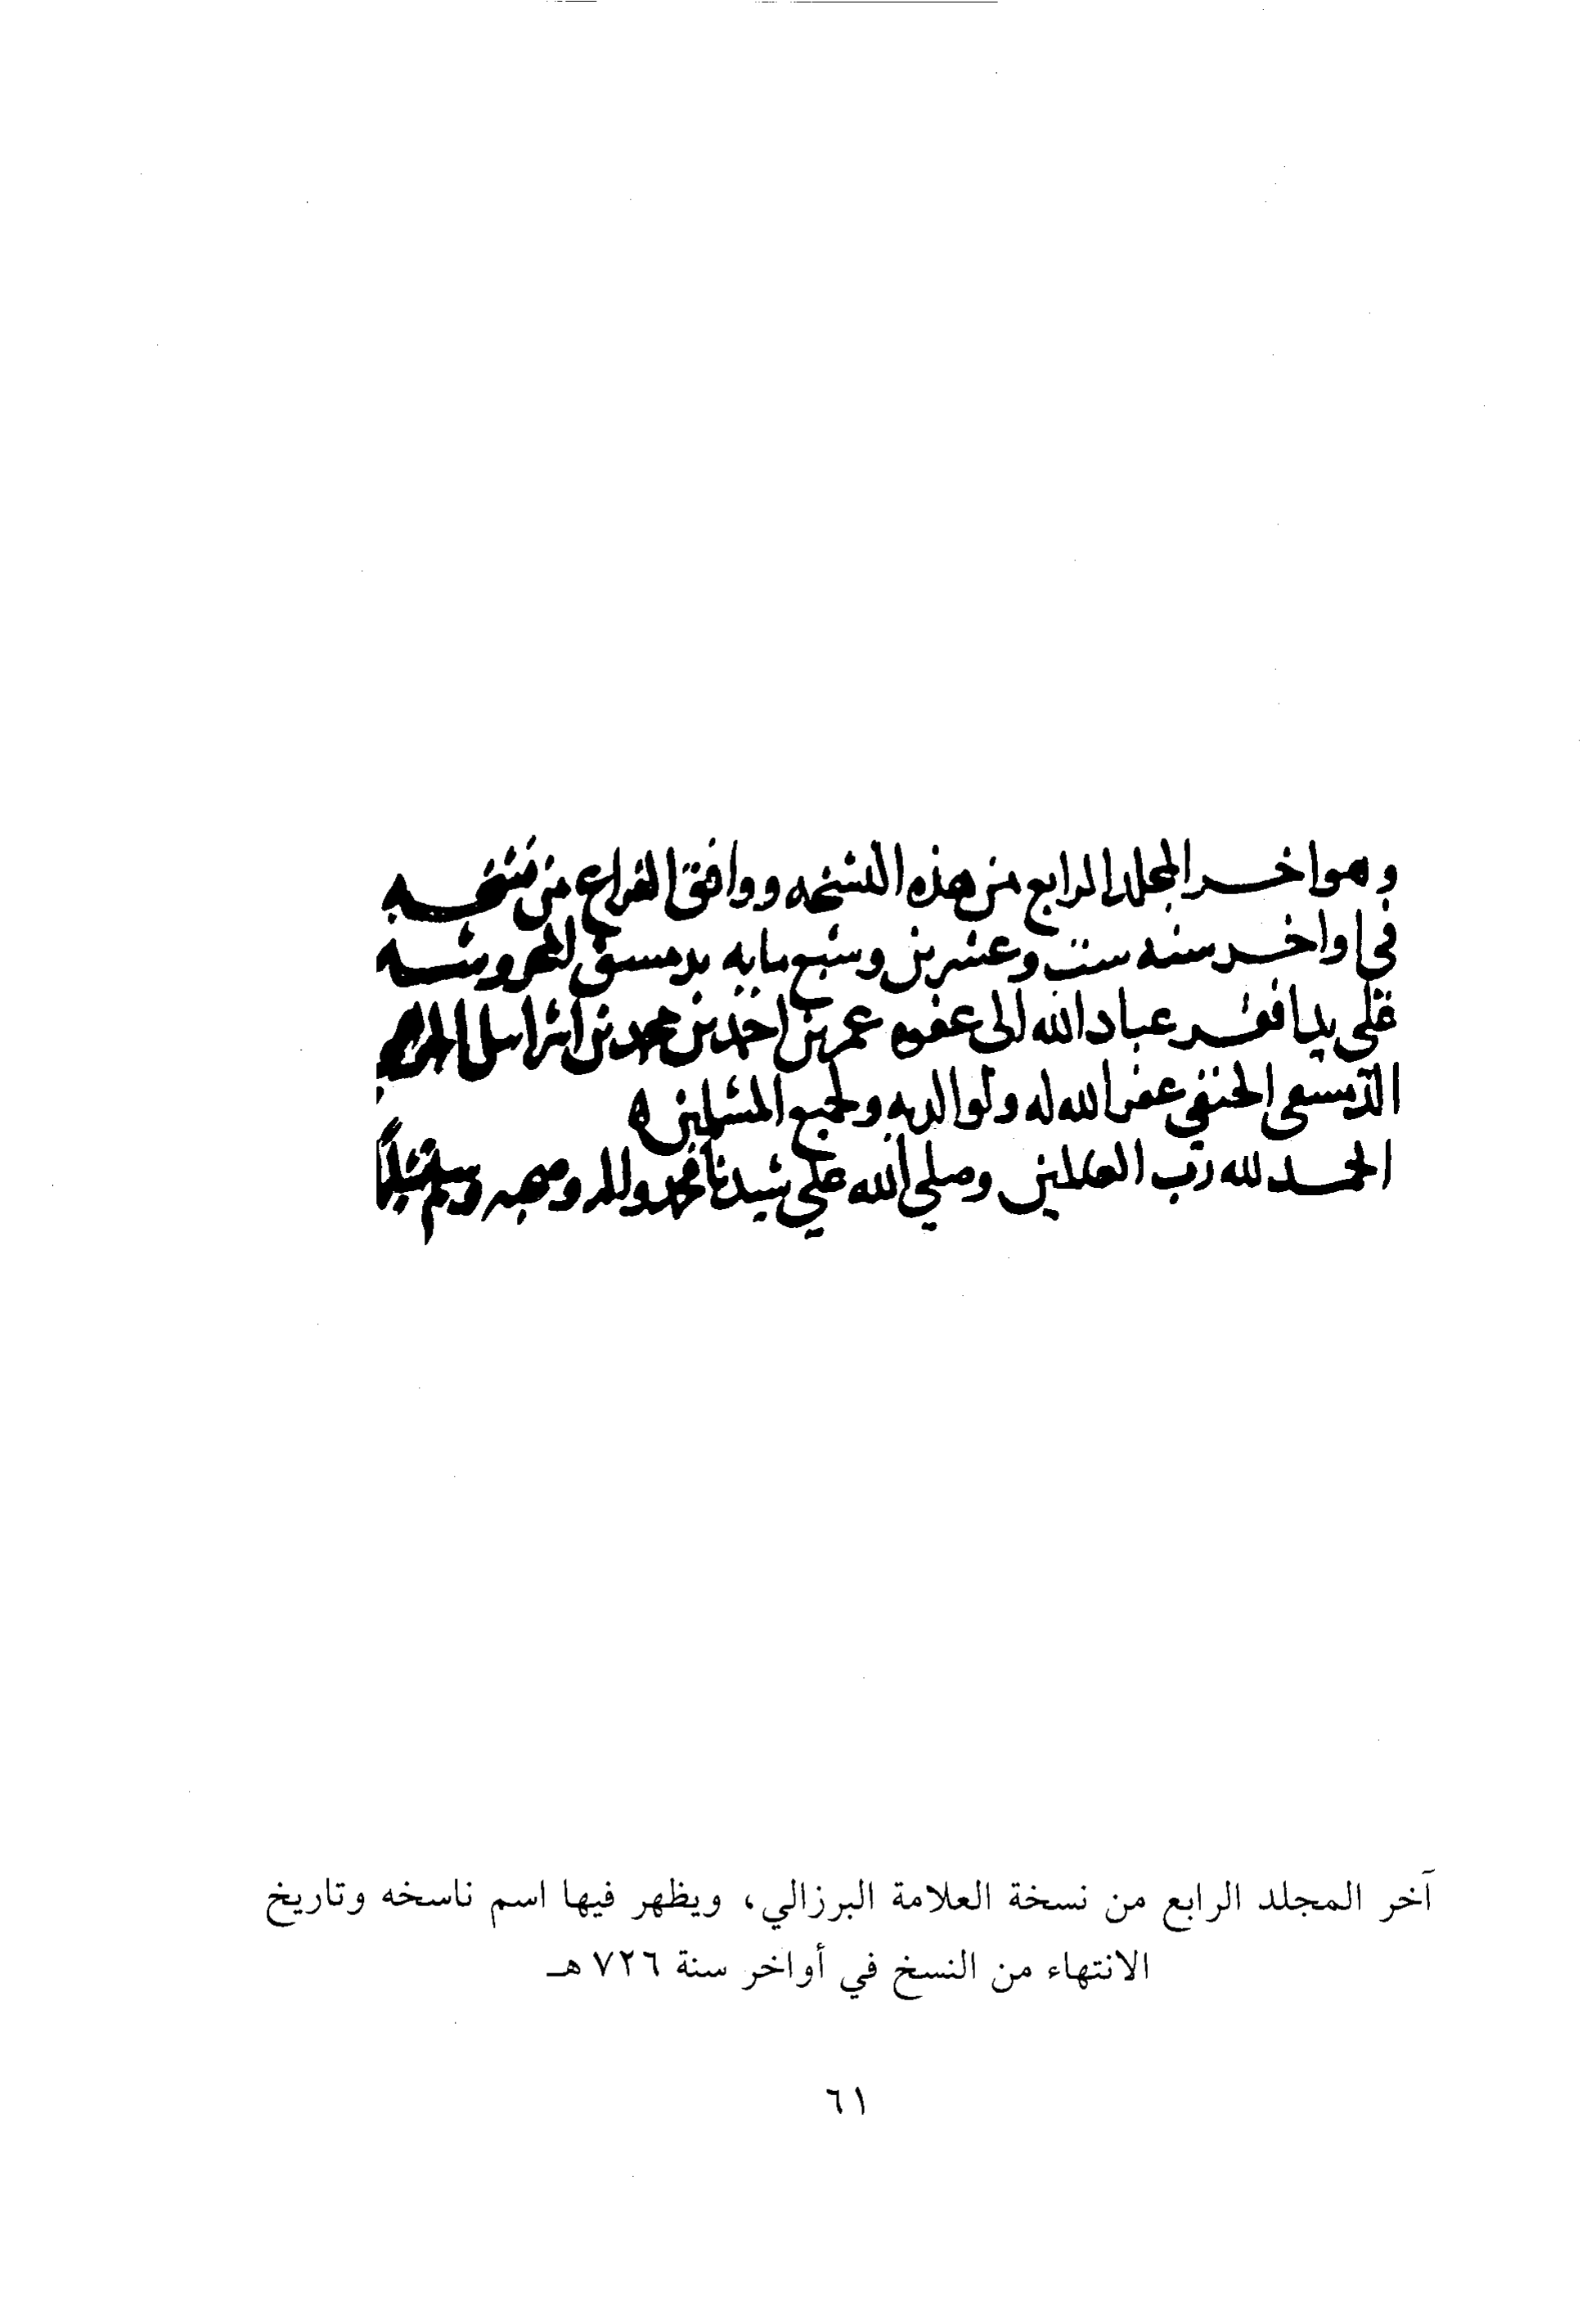 وهو اخر المجلد الرابع من هذه النسخه ووافق الفراغ من نسخه
في اواخر سنه ست وعشرين وسبع مايه بدمسق المحروسه
على يد افقر عباد الله الى عفوه عمر بن احمد بن محمد بن
الحنفي عفر الله له ولوالديه ولجميع المسلمين
الحمد لله رب العالمين وصلي الله علي سيدنا محمد واله وصحبه وسلم
آخر المجلد الرابع من نسخة العلامة البرزالي، ويظهر فيها اسم ناسخه وتاريخ
الانتهاء من النسخ في أواخر سنة ٧٢٦ هـ
٦١